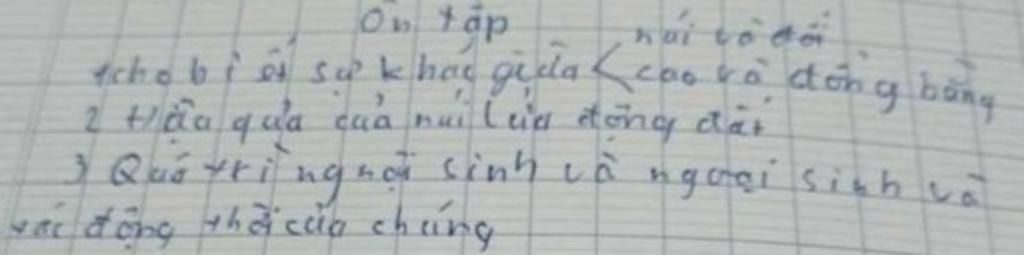 Ôn tập
1 cho biết sự khác giữa < núi và đồi
cao và đồng bằng
2 Hậu quả của núi lửa động đất
3 Quá trì ng nội sinh và ngoại sinh và
tác động thời của chúng